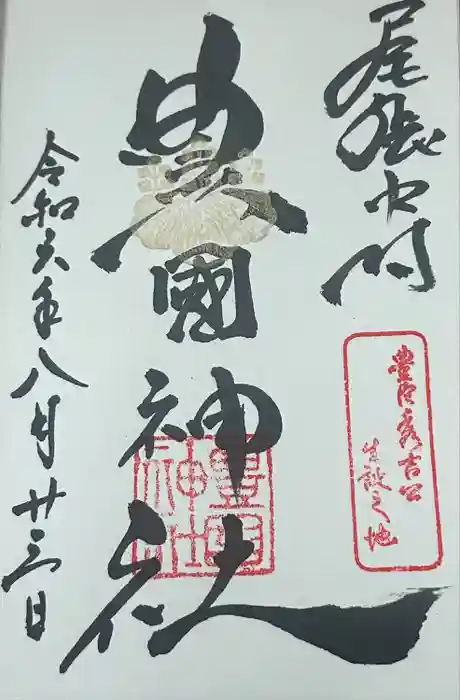 尾張中村
豊臣秀吉公
生誕之地
豊國神社
豊國
神社
令和六年八月廿三日